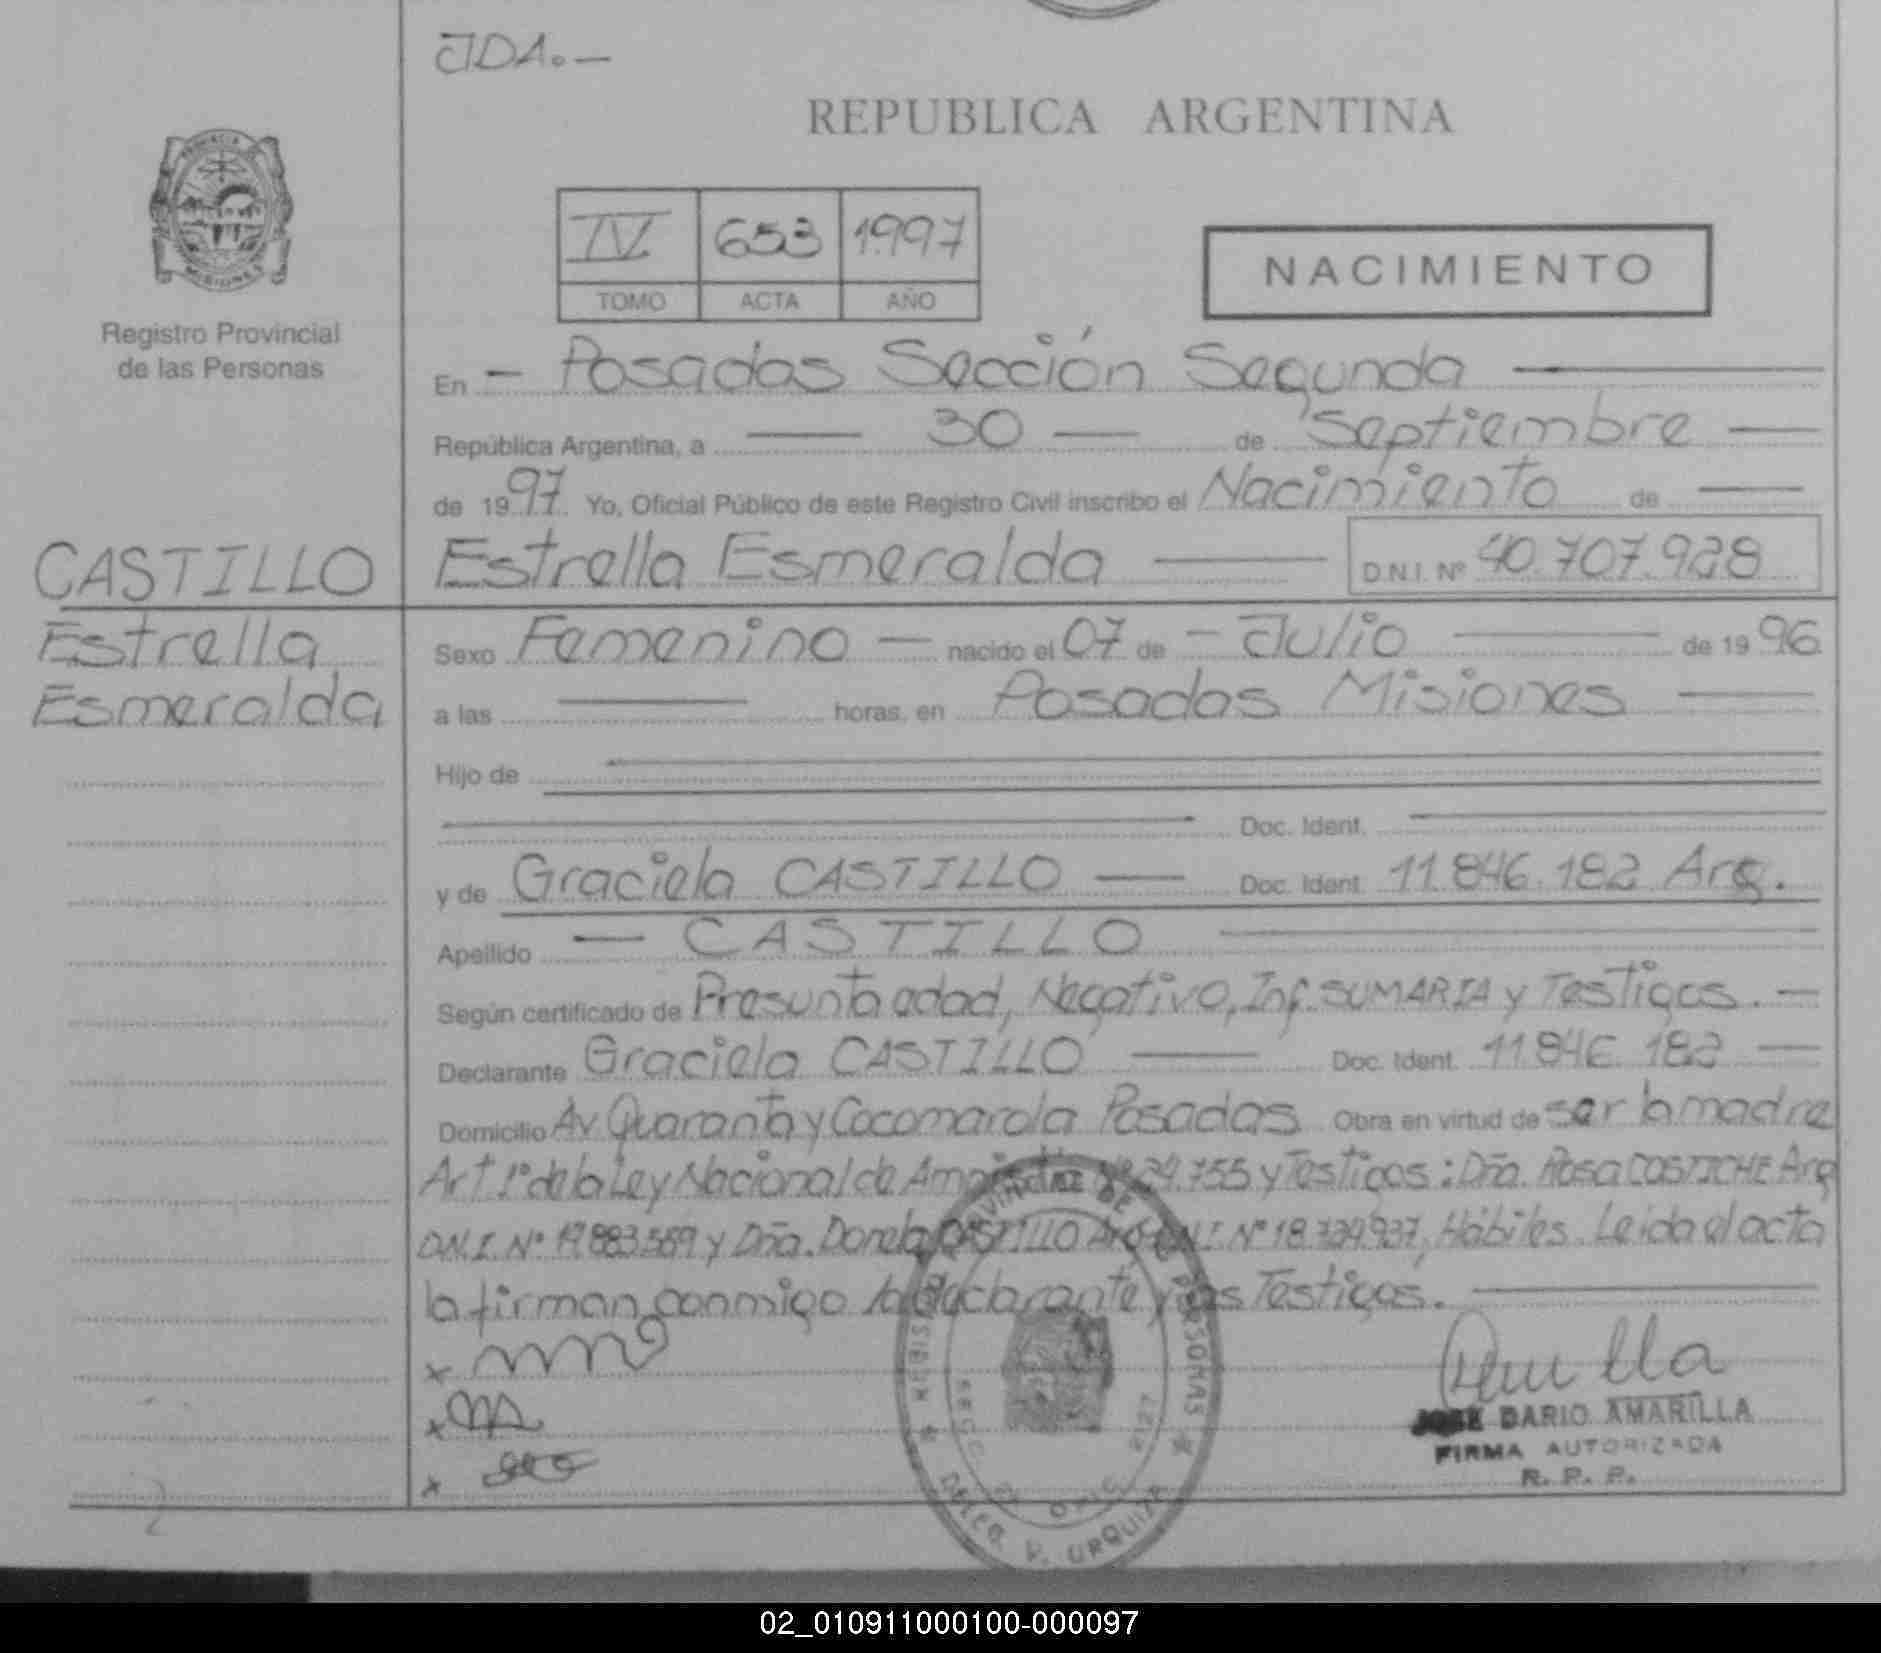 JDA.—
REPUBLICA ARGENTINA
IV 653 1997
TOMO ACTA AÑO
NACIMIENTO
Registro Provincial
de las Personas
En — Posadas Sección Segunda —
República Argentina, a — 30 — de Septiembre —
de 1997. Yo, Oficial Público de este Registro Civil inscribo el Nacimiento de —
CASTILLO Estrella Esmeralda — D.N.I. Nº 40.707.928
Estrella
Esmeralda
Sexo Femenino — nacido el 07 de — Julio — de 1996
a las — horas, en Posadas Misiones —
Hijo de —
— Doc. Ident. —
y de Graciela CASTILLO — Doc. Ident. 11.846.182 Arg.
Apellido — CASTILLO —
Según certificado de Presunta edad, Negativo, Inf. SUMARIA y Testigos. —
Declarante Graciela CASTILLO — Doc. Ident. 11.846.182 —
Domicilio Av. Quaranta y Cocomarola Posadas Obra en virtud de ser la madre
Art 1º de la Ley Nacional de 24.755 y Testigos: Dña. Rosa Arg
D.N.I. Nº y Dña. CASTILLO Arg. D.N.I. Nº 18.724.937, Hábiles. Leida el acta
la firman conmigo la declarante y los Testigos. —
x
x
x
REGISTRO PROVINCIAL DE LAS PERSONAS
URQUIZA
JOSE DARIO AMARILLA
FIRMA AUTORIZADA
R. P. P.
02_010911000100-000097